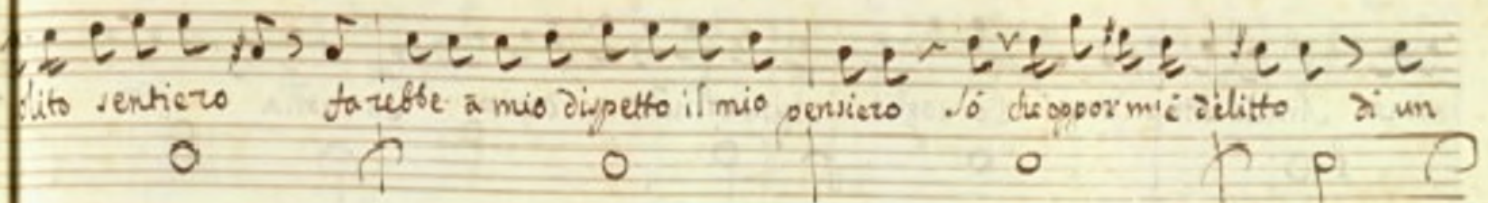 olito sentiero farebbe à mio dispetto il mio pensiero Sò ch'oppor m'è delitto di un